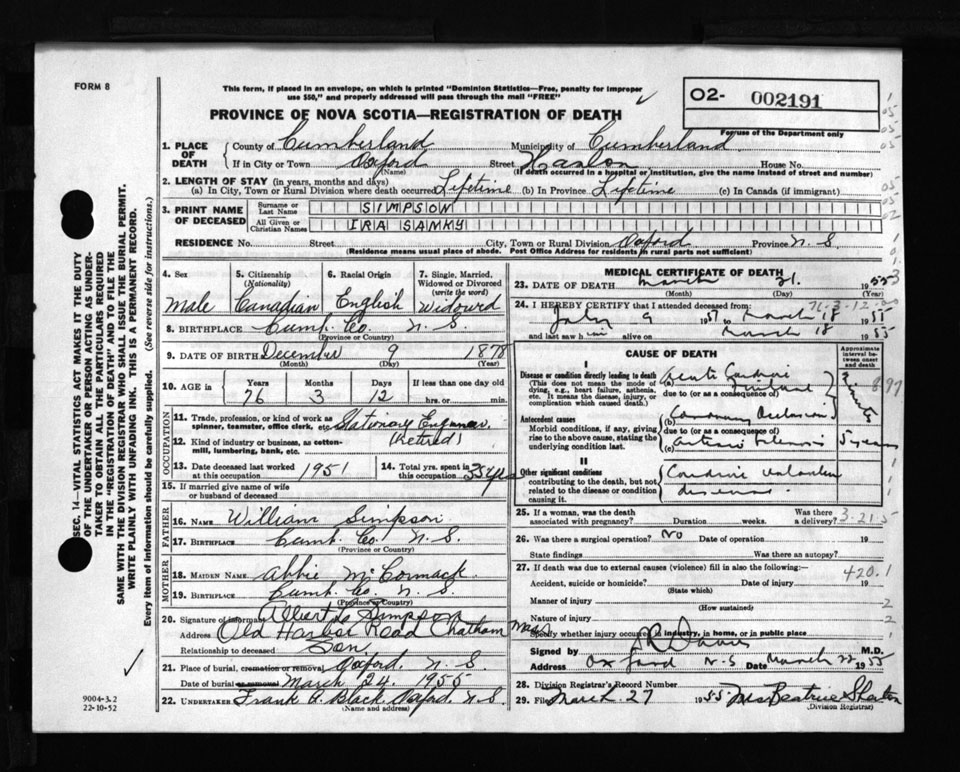 FORM 8
This form, if placed in an envelope, on which is printed "Dominion Statistics—Free, penalty for improper
use $50," and properly addressed will pass through the mail "FREE"
PROVINCE OF NOVA SCOTIA—REGISTRATION OF DEATH
02- 002191
For use of the Department only
1. PLACE OF DEATH
County of Cumberland Municipality of Cumberland
If in City or Town Oxford Street House No.
(Name) (If death occurred in a hospital or institution, give the name instead of street and number)
2. LENGTH OF STAY (in years, months and days)
(a) In City, Town or Rural Division where death occurred Lifetime (b) In Province Lifetime (c) In Canada (if immigrant)
3. PRINT NAME OF DECEASED
Surname or Last Name SIMPSON
All Given or Christian Names IRA SANKY
RESIDENCE No. Street City, Town or Rural Division Oxford Province N.S.
(Residence means usual place of abode. Post Office Address for residents in rural parts not sufficient)
4. Sex
Male
5. Citizenship (Nationality)
Canadian
6. Racial Origin
English
7. Single, Married, Widowed or Divorced (write the word)
Widowed
8. BIRTHPLACE Cumb. Co. N.S.
(Province or Country)
9. DATE OF BIRTH December 9 1878
(Month) (Day) (Year)
10. AGE in
Years Months Days If less than one day old
76 3 12 hrs. or min.
OCCUPATION
11. Trade, profession, or kind of work as spinner, teamster, office clerk, etc. Stationary Engineer
12. Kind of industry or business, as cotton-mill, lumbering, bank, etc. (Retired)
13. Date deceased last worked at this occupation 1951
14. Total yrs. spent in this occupation 35 yrs
15. If married give name of wife or husband of deceased
FATHER
16. NAME William Simpson
17. BIRTHPLACE Cumb. Co. N.S.
(Province or Country)
MOTHER
18. MAIDEN NAME Abbie McCormack
19. BIRTHPLACE Cumb. Co. N.S.
(Province or Country)
20. Signature of informant Albert Simpson
Address Old Harbor Road Chatham Mass
Relationship to deceased Son
21. Place of burial, cremation or removal Oxford, N.S.
Date of burial or removal March 24, 1955
22. UNDERTAKER Frank Black Oxford, N.S.
(Name and address)
MEDICAL CERTIFICATE OF DEATH
23. DATE OF DEATH March 21. 1955
(Month) (Day) (Year)
24. I HEREBY CERTIFY that I attended deceased from: 76-3-12
July 9 1951 to March 18 1955
and last saw him alive on March 18 1955
CAUSE OF DEATH
Approximate interval between onset and death
I
Disease or condition directly leading to death
(This does not mean the mode of dying, e.g., heart failure, asthenia, etc. It means the disease, injury, or complication which caused death.)
(a) Acute Cardiac
due to (or as a consequence of)
Antecedent causes
Morbid conditions, if any, giving rise to the above cause, stating the underlying condition last.
(b) Coronary Occlusion
due to (or as a consequence of)
(c) Arterio Sclerosis 5 years
II
Other significant conditions
contributing to the death, but not related to the disease or condition causing it.
Cardiac valvular disease
25. If a woman, was the death associated with pregnancy? Duration weeks. Was there a delivery? 3-21-5
26. Was there a surgical operation? No Date of operation 19
State findings Was there an autopsy?
27. If death was due to external causes (violence) fill in also the following:— 420.1
Accident, suicide or homicide? Date of injury 19
(State which)
Manner of injury
(How sustained)
Nature of injury
Specify whether injury occurred in industry, in home, or in public place
Signed by M.D.
Address Oxford N.S Date March 22 1955
28. Division Registrar's Record Number
29. Filed March 27 1955 Mrs Beatrice
(Division Registrar)
SEC. 14—VITAL STATISTICS ACT MAKES IT THE DUTY
OF THE UNDERTAKER OR PERSON ACTING AS UNDER-
TAKER TO OBTAIN ALL THE PARTICULARS REQUIRED
IN THE "REGISTRATION OF DEATH" AND TO FILE THE
SAME WITH THE DIVISION REGISTRAR WHO SHALL ISSUE THE BURIAL PERMIT.
WRITE PLAINLY WITH UNFADING INK. THIS IS A PERMANENT RECORD.
Every item of information should be carefully supplied. (See reverse side for instructions.)
9004-3.2
22-10-52